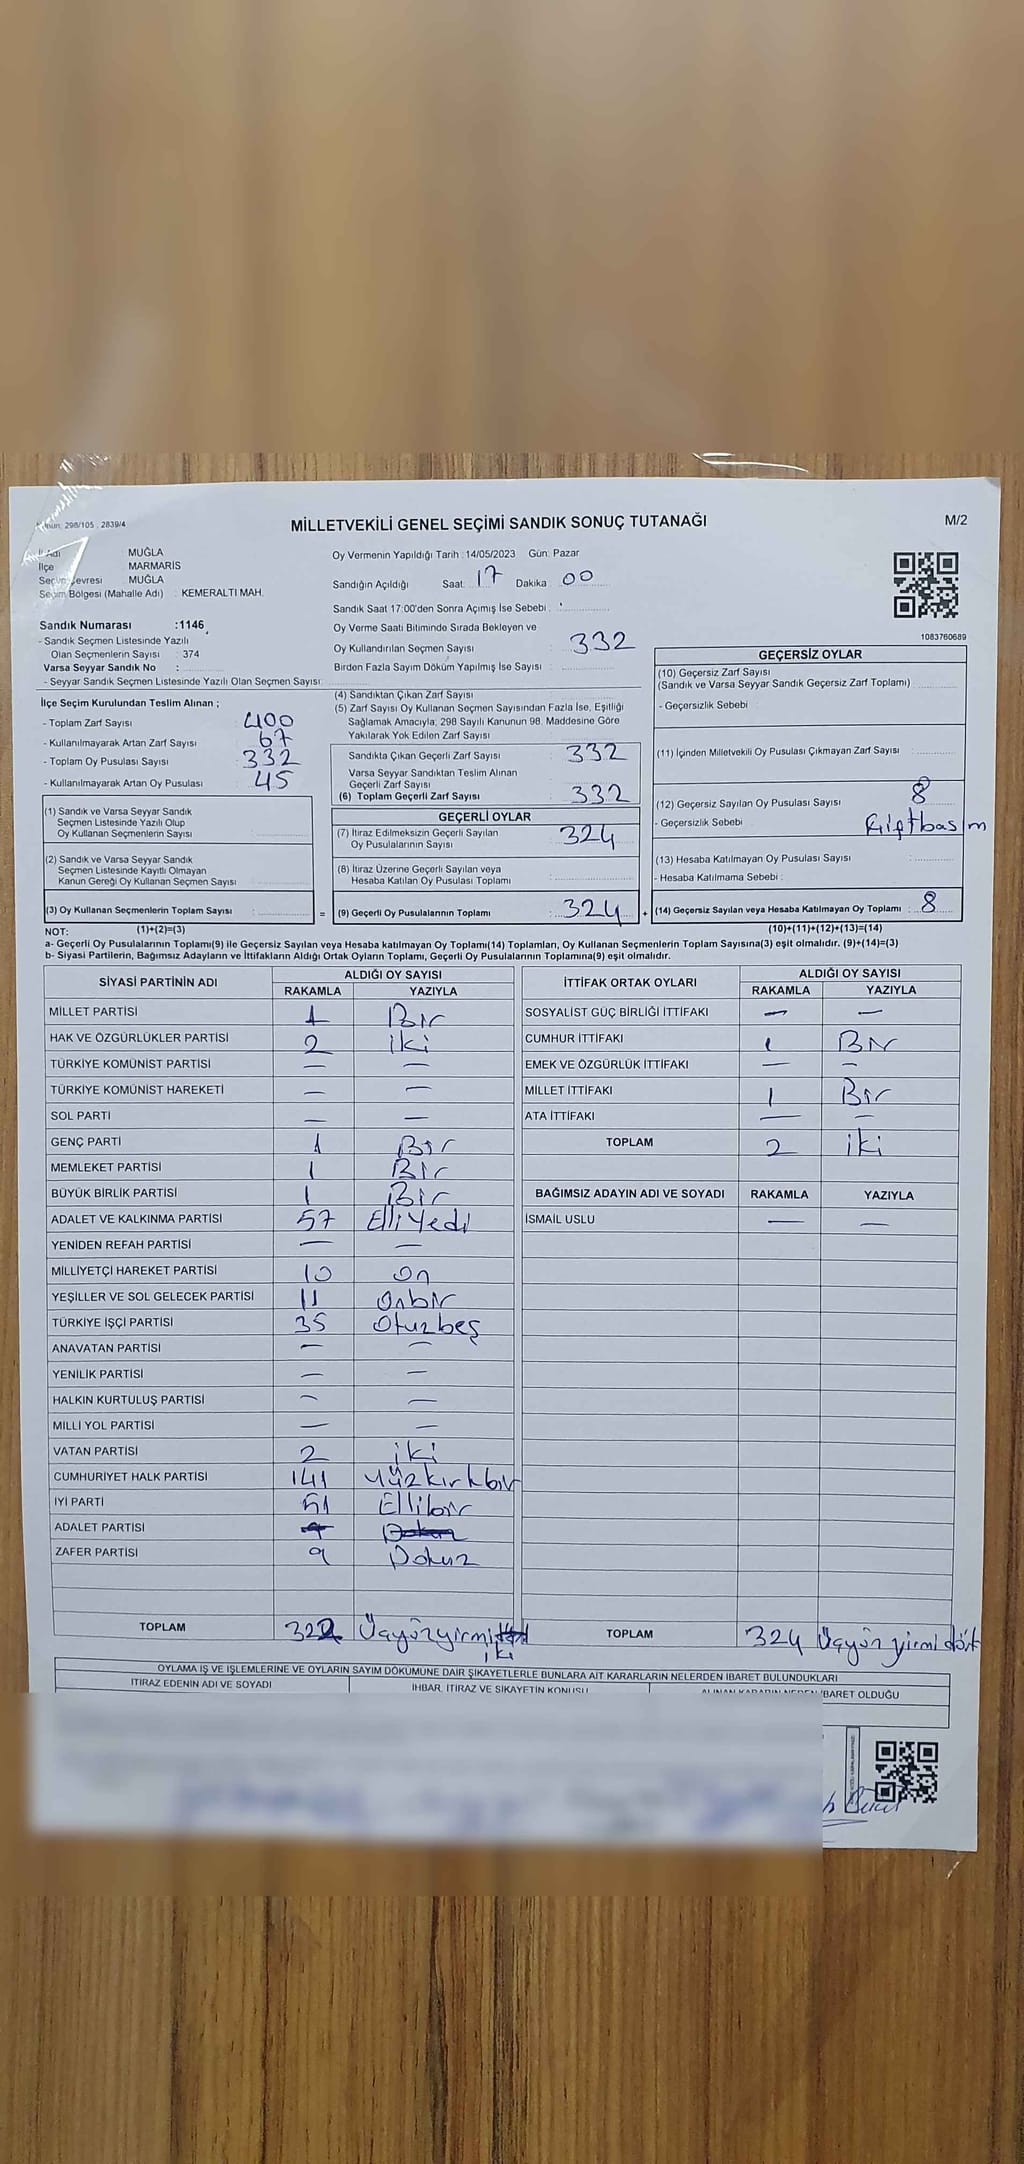 Kanun: 298/105 , 2839/4
MİLLETVEKİLİ GENEL SEÇİMİ SANDIK SONUÇ TUTANAĞI
M/2
İl Adı MUĞLA
İlçe MARMARİS
Seçim Çevresi MUĞLA
Seçim Bölgesi (Mahalle Adı) : KEMERALTI MAH.
Sandık Numarası :1146
- Sandık Seçmen Listesinde Yazılı
Olan Seçmenlerin Sayısı : 374
Varsa Seyyar Sandık No :
- Seyyar Sandık Seçmen Listesinde Yazılı Olan Seçmen Sayısı:
Oy Vermenin Yapıldığı Tarih : 14/05/2023 Gün: Pazar
Sandığın Açıldığı Saat: 17 Dakika 00
Sandık Saat 17:00'den Sonra Açımış İse Sebebi :
Oy Verme Saati Bitiminde Sırada Bekleyen ve
Oy Kullandırılan Seçmen Sayısı 332
Birden Fazla Sayım Döküm Yapılmış İse Sayısı :
1083760689
İlçe Seçim Kurulundan Teslim Alınan ;
- Toplam Zarf Sayısı : 400
- Kullanılmayarak Artan Zarf Sayısı : 67
- Toplam Oy Pusulası Sayısı : 332
- Kullanılmayarak Artan Oy Pusulası : 45
(1) Sandık ve Varsa Seyyar Sandık
Seçmen Listesinde Yazılı Olup
Oy Kullanan Seçmenlerin Sayısı
(2) Sandık ve Varsa Seyyar Sandık
Seçmen Listesinde Kayıtlı Olmayan
Kanun Gereği Oy Kullanan Seçmen Sayısı
(3) Oy Kullanan Seçmenlerin Toplam Sayısı : =
(4) Sandıktan Çıkan Zarf Sayısı
(5) Zarf Sayısı Oy Kullanan Seçmen Sayısından Fazla İse, Eşitliği
Sağlamak Amacıyla, 298 Sayılı Kanunun 98. Maddesine Göre
Yakılarak Yok Edilen Zarf Sayısı
Sandıkta Çıkan Geçerli Zarf Sayısı 332
Varsa Seyyar Sandıktan Teslim Alınan
Geçerli Zarf Sayısı
(6) Toplam Geçerli Zarf Sayısı 332
GEÇERLİ OYLAR
(7) İtiraz Edilmeksizin Geçerli Sayılan
Oy Pusulalarının Sayısı 324
(8) İtiraz Üzerine Geçerli Sayılan veya
Hesaba Katılan Oy Pusulası Toplamı
(9) Geçerli Oy Pusulalarının Toplamı 324 +
GEÇERSİZ OYLAR
(10) Geçersiz Zarf Sayısı
(Sandık ve Varsa Seyyar Sandık Geçersiz Zarf Toplamı)
- Geçersizlik Sebebi :
(11) İçinden Milletvekili Oy Pusulası Çıkmayan Zarf Sayısı :
(12) Geçersiz Sayılan Oy Pusulası Sayısı 8
- Geçersizlik Sebebi : Çiftbasım
(13) Hesaba Katılmayan Oy Pusulası Sayısı :
- Hesaba Katılmama Sebebi :
(14) Geçersiz Sayılan veya Hesaba Katılmayan Oy Toplamı : 8
NOT: (1)+(2)=(3) (10)+(11)+(12)+(13)=(14)
a- Geçerli Oy Pusulalarının Toplamı(9) ile Geçersiz Sayılan veya Hesaba katılmayan Oy Toplamı(14) Toplamları, Oy Kullanan Seçmenlerin Toplam Sayısına(3) eşit olmalıdır. (9)+(14)=(3)
b- Siyasi Partilerin, Bağımsız Adayların ve İttifakların Aldığı Ortak Oyların Toplamı, Geçerli Oy Pusulalarının Toplamına(9) eşit olmalıdır.
SİYASİ PARTİNİN ADI ALDIĞI OY SAYISI
RAKAMLA YAZIYLA
MİLLET PARTİSİ 1 Bir
HAK VE ÖZGÜRLÜKLER PARTİSİ 2 iki
TÜRKİYE KOMÜNİST PARTİSİ — —
TÜRKİYE KOMÜNİST HAREKETİ — —
SOL PARTİ — —
GENÇ PARTİ 1 Bir
MEMLEKET PARTİSİ 1 Bir
BÜYÜK BİRLİK PARTİSİ 1 Bir
ADALET VE KALKINMA PARTİSİ 57 Elli Yedi
YENİDEN REFAH PARTİSİ — —
MİLLİYETÇİ HAREKET PARTİSİ 10 On
YEŞİLLER VE SOL GELECEK PARTİSİ 11 Onbir
TÜRKİYE İŞÇİ PARTİSİ 35 Otuzbeş
ANAVATAN PARTİSİ — —
YENİLİK PARTİSİ — —
HALKIN KURTULUŞ PARTİSİ — —
MİLLİ YOL PARTİSİ — —
VATAN PARTİSİ 2 iki
CUMHURİYET HALK PARTİSİ 141 Yüzkırkbir
İYİ PARTİ 51 Ellibir
ADALET PARTİSİ
ZAFER PARTİSİ 9 Dokuz
TOPLAM 322 Üçyüzyirmi iki
İTTİFAK ORTAK OYLARI ALDIĞI OY SAYISI
RAKAMLA YAZIYLA
SOSYALİST GÜÇ BİRLİĞİ İTTİFAKI — —
CUMHUR İTTİFAKI 1 Bir
EMEK VE ÖZGÜRLÜK İTTİFAKI — —
MİLLET İTTİFAKI 1 Bir
ATA İTTİFAKI — —
TOPLAM 2 iki
BAĞIMSIZ ADAYIN ADI VE SOYADI RAKAMLA YAZIYLA
İSMAİL USLU — —
TOPLAM 324 Üçyüz yirmi dört
OYLAMA İŞ VE İŞLEMLERİNE VE OYLARIN SAYIM DÖKÜMÜNE DAİR ŞİKAYETLERLE BUNLARA AİT KARARLARIN NELERDEN İBARET BULUNDUKLARI
İTİRAZ EDENİN ADI VE SOYADI İHBAR, İTİRAZ VE ŞİKAYETİN KONUSU ALINAN KARARIN NEDEN İBARET OLDUĞU